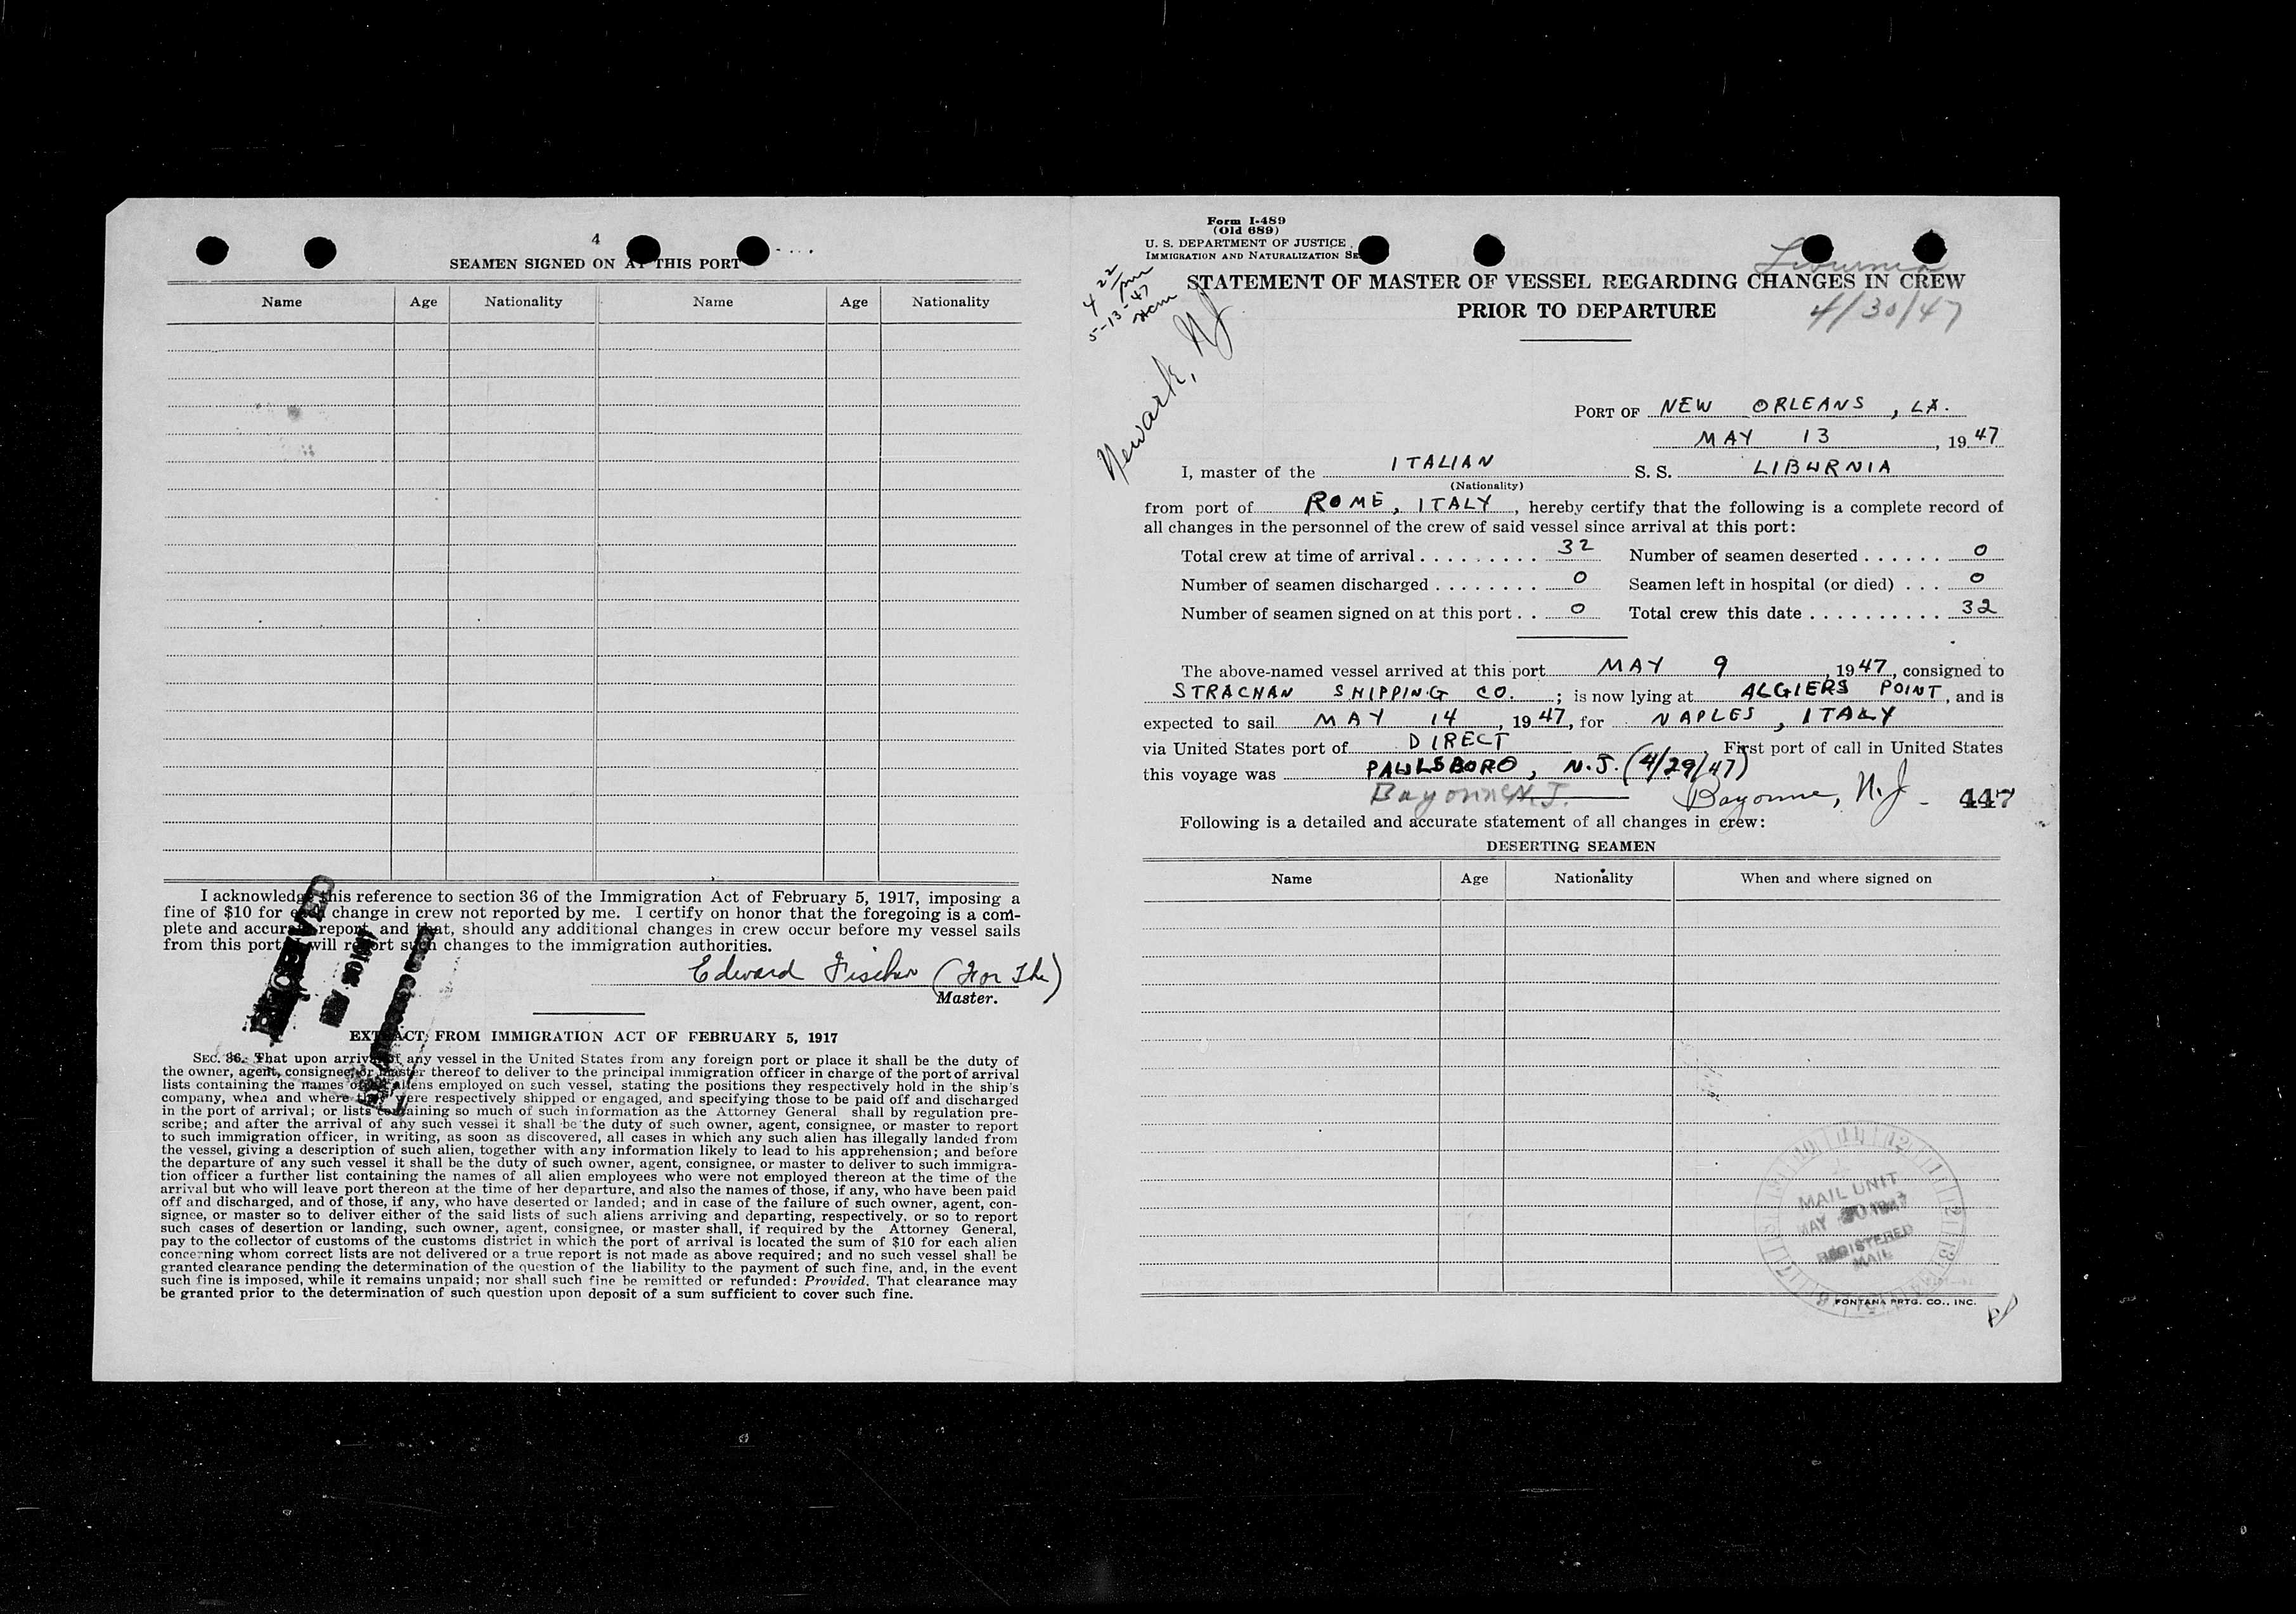 4
SEAMEN SIGNED ON AT THIS PORT
Name Age Nationality Name Age Nationality
I acknowledge this reference to section 36 of the Immigration Act of February 5, 1917, imposing a
fine of $10 for each change in crew not reported by me. I certify on honor that the foregoing is a com-
plete and accurate report, and that, should any additional changes in crew occur before my vessel sails
from this port, will report such changes to the immigration authorities.
Edward Fischer (For The)
Master.
RECEIVED
EXTRACT FROM IMMIGRATION ACT OF FEBRUARY 5, 1917
SEC. 36. That upon arrival of any vessel in the United States from any foreign port or place it shall be the duty of
the owner, agent, consignee, or master thereof to deliver to the principal immigration officer in charge of the port of arrival
lists containing the names of all aliens employed on such vessel, stating the positions they respectively hold in the ship's
company, when and where they were respectively shipped or engaged, and specifying those to be paid off and discharged
in the port of arrival; or lists containing so much of such information as the Attorney General shall by regulation pre-
scribe; and after the arrival of any such vessel it shall be the duty of such owner, agent, consignee, or master to report
to such immigration officer, in writing, as soon as discovered, all cases in which any such alien has illegally landed from
the vessel, giving a description of such alien, together with any information likely to lead to his apprehension; and before
the departure of any such vessel it shall be the duty of such owner, agent, consignee, or master to deliver to such immigra-
tion officer a further list containing the names of all alien employees who were not employed thereon at the time of the
arrival but who will leave port thereon at the time of her departure, and also the names of those, if any, who have been paid
off and discharged, and of those, if any, who have deserted or landed; and in case of the failure of such owner, agent, con-
signee, or master so to deliver either of the said lists of such aliens arriving and departing, respectively, or so to report
such cases of desertion or landing, such owner, agent, consignee, or master shall, if required by the Attorney General,
pay to the collector of customs of the customs district in which the port of arrival is located the sum of $10 for each alien
concerning whom correct lists are not delivered or a true report is not made as above required; and no such vessel shall be
granted clearance pending the determination of the question of the liability to the payment of such fine, and, in the event
such fine is imposed, while it remains unpaid; nor shall such fine be remitted or refunded: Provided, That clearance may
be granted prior to the determination of such question upon deposit of a sum sufficient to cover such fine.
Form I-489
(Old 689)
U. S. DEPARTMENT OF JUSTICE
IMMIGRATION AND NATURALIZATION SE
Liburnia
4/30/47
4 22/pm
5-13-47
Newark, NJ
STATEMENT OF MASTER OF VESSEL REGARDING CHANGES IN CREW
PRIOR TO DEPARTURE
PORT OF NEW ORLEANS, LA.
MAY 13, 1947
I, master of the ITALIAN S. S. LIBURNIA
(Nationality)
from port of ROME, ITALY, hereby certify that the following is a complete record of
all changes in the personnel of the crew of said vessel since arrival at this port:
Total crew at time of arrival . . . . . . . . . . 32 Number of seamen deserted . . . . . . 0
Number of seamen discharged . . . . . . . . 0 Seamen left in hospital (or died) . . . 0
Number of seamen signed on at this port . . 0 Total crew this date . . . . . . . . . . 32
The above-named vessel arrived at this port MAY 9, 1947, consigned to
STRACHAN SHIPPING CO. ; is now lying at ALGIERS POINT, and is
expected to sail MAY 14, 1947, for NAPLES, ITALY
via United States port of DIRECT First port of call in United States
this voyage was PAULSBORO, N.J. (4/29/47)
Bayonne N.J. Bayonne, N.J. 447
Following is a detailed and accurate statement of all changes in crew:
DESERTING SEAMEN
Name Age Nationality When and where signed on
MAIL UNIT
MAY 20 1947
REGISTERED
MAIL
FONTANA PRTG. CO., INC.